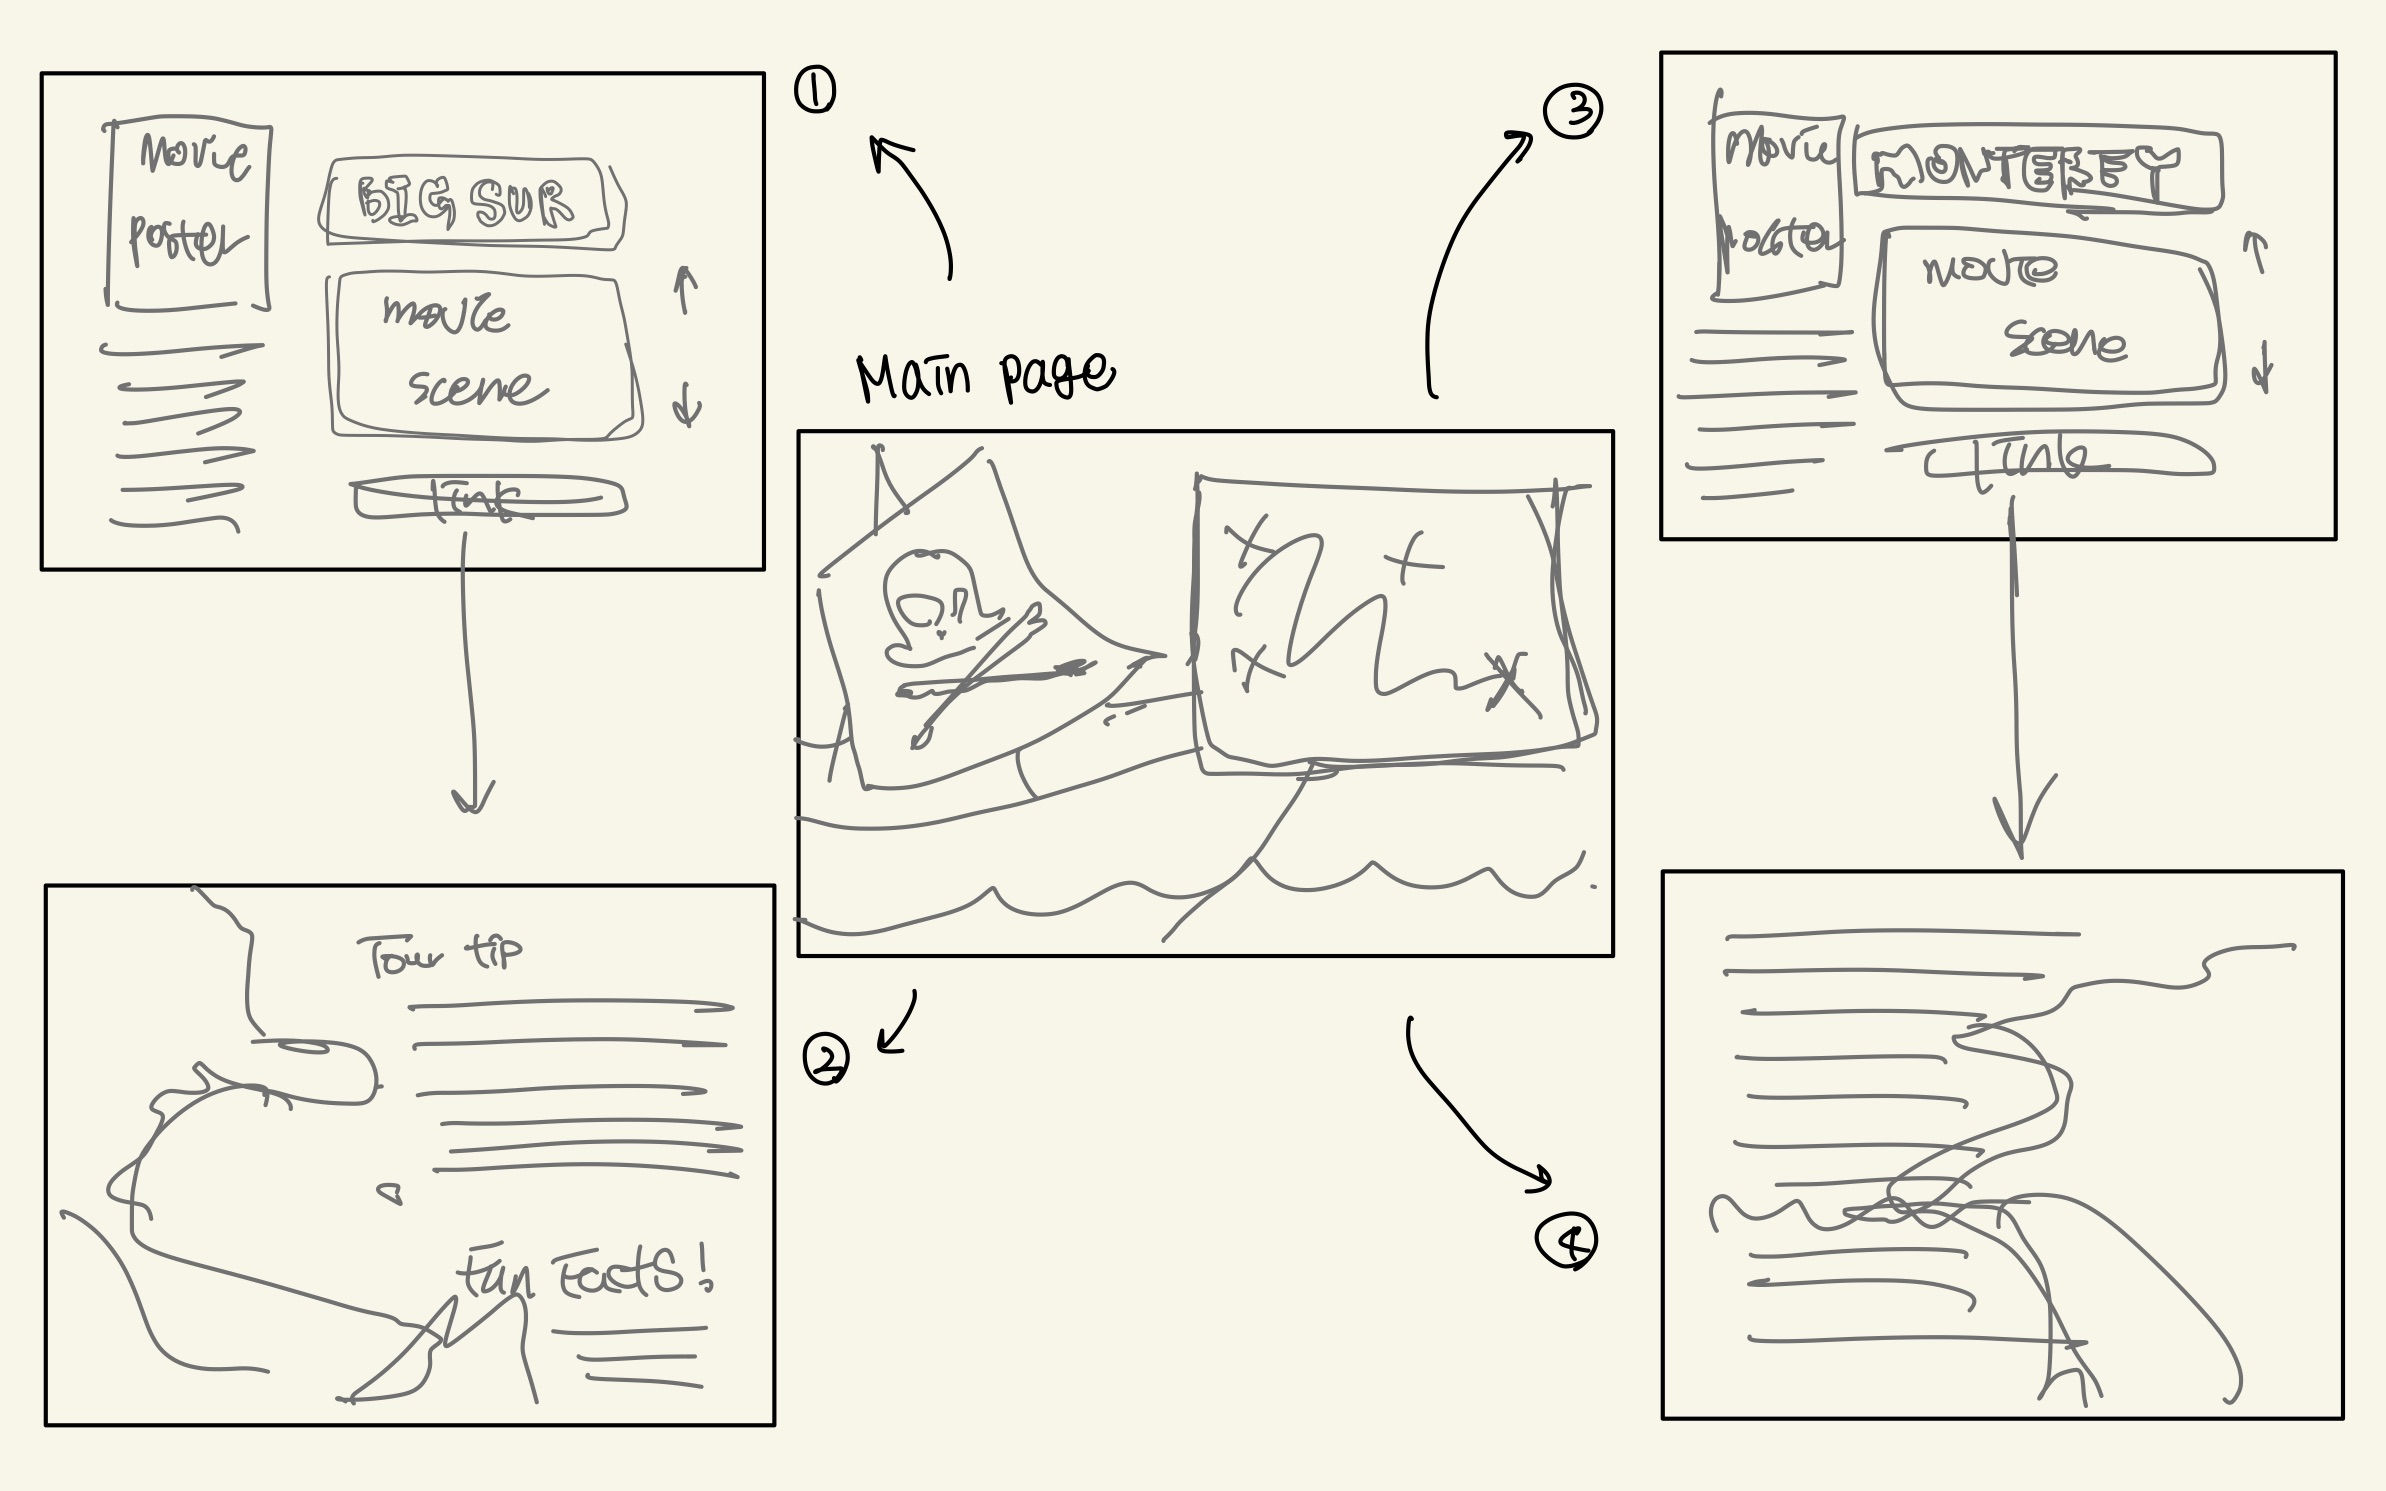 1
Movie
Poster
BIG SUR
movie
scene
Link
Main page
3
Movie
Poster
MONTEREY
movie
scene
Link
2
Tour tip
Fun Facts!
4